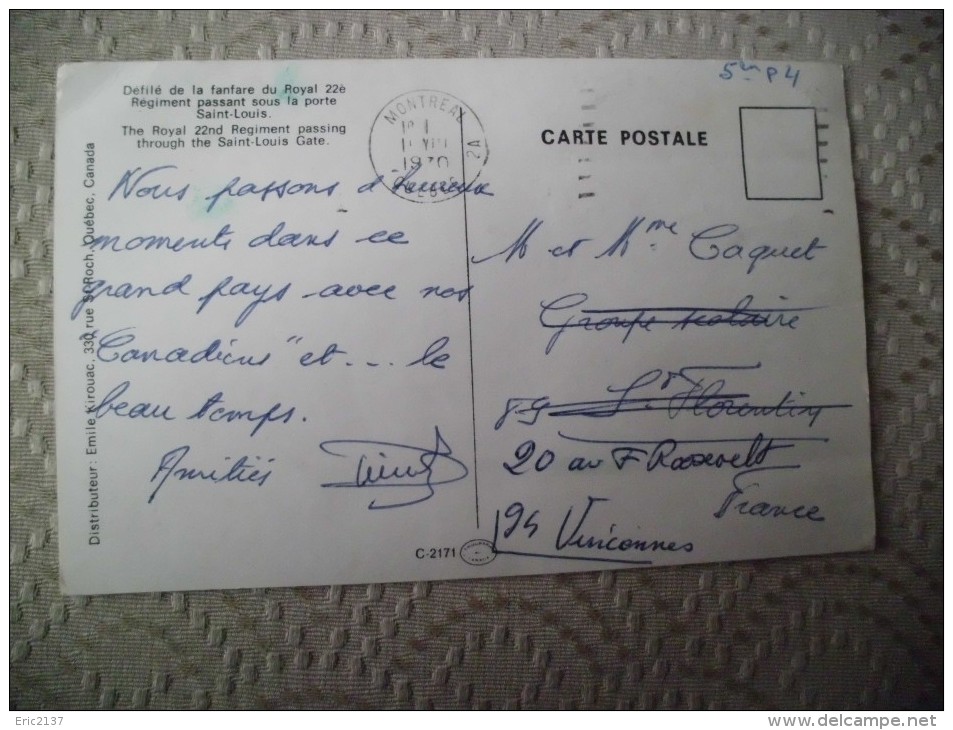 5en P4
Défilé de la fanfare du Royal 22è
Régiment passant sous la porte
Saint-Louis.
The Royal 22nd Regiment passing
through the Saint-Louis Gate.
MONTREAL
PM
1970
QUEBEC
2A
CARTE POSTALE
Nous passons d'heureux
moments dans ce
grand pays avec nos
"Canadiens" et... le
beau temps.
Amitiés
M et Mme Caquet
Groupe scolaire
89 St Florentin
20 av F Roosevelt
France
94 Vincennes
Distributeur: Emile Kirouac, 330 rue St-Roch, Québec, Canada
C-2171
Eric2137
delcampe.net